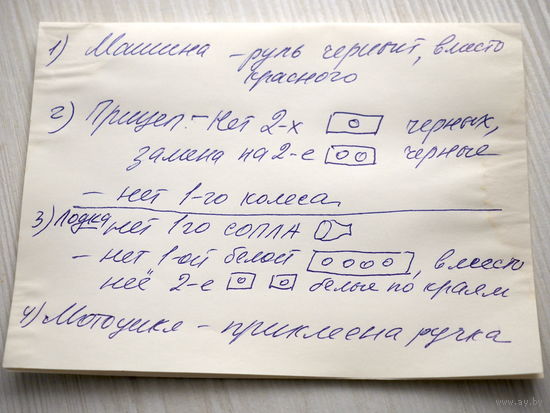 1) Машина – руль черный, вместо
красного
2) Прицеп. – Нет 2-х черных,
замена на 2-е черные
– нет 1-го колеса.
3) Лодка нет 1го сопла
– нет 1-ой белой, вместо
неё 2-е белые по краям
4) Мотоцикл – приклеена ручка
www.ay.by